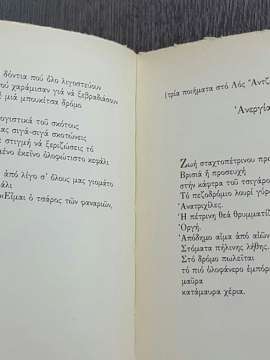 δόντια πού ὅλο λιγοστεύουν
χαράμισαν γιά νά ξεβραδιάσουν
μιά μπουκίτσα δρόμο
λογιστικά τοῦ σκότους
σιγά-σιγά σκοτώνεις
στιγμή νά ξεριζώσεις τό
ἐκεῖνο ὁλοφώτιστο κεφάλι
ἀπό λίγο σ' ὅλους μας γιομάτο
«Εἶμαι ὁ τσάρος τῶν φαναριῶν,
(τρία ποιήματα στό Λός Ἄντζ
Ἀνεργία
Ζωή σταχτοπέτρινου
Βρισιά ἤ προσευχή
στήν κάφτρα τοῦ τσιγάρο
Τό πεζοδρόμιο λουρί
Ἀνατριχίλες.
Ἡ πέτρινη θεά θρυμματίζ
Ὀργή.
Ἀπόδημο αἷμα ἀπό αἰών
Στόματα πήλινης λήθης.
Στό δρόμο πωλεῖται
τό πιό ὁλοφάνερο ἐμπόρ
μαῦρα
κατάμαυρα χέρια.